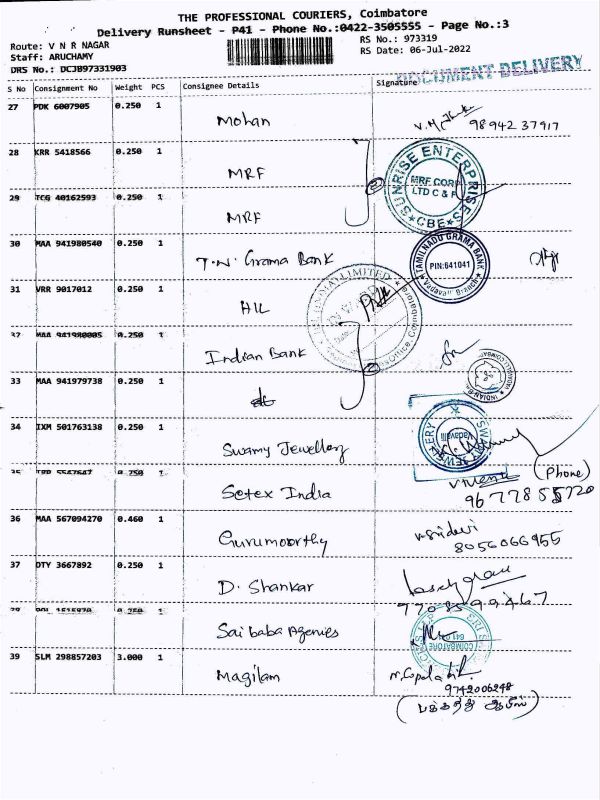 THE PROFESSIONAL COURIERS, Coimbatore
Delivery Runsheet - P41 - Phone No.:0422-3505555 - Page No.:3
Route: V N R NAGAR
RS No.: 973319
Staff: ARUCHAMY
RS Date: 06-Jul-2022
DRS No.: DCJB97331903
DOCUMENT DELIVERY
S No Consignment No Weight PCS Consignee Details Signature
27 PDK 6007905 0.250 1 Mohan 98942 37917
28 KRR 5418566 0.250 1 MRF
SUNRISE ENTERPRISES
MRF CORP
LTD C & F
CBE
29 TCG 40162593 0.250 1 MRF
30 MAA 941980540 0.250 1 T.N. Grama Bank
TAMILNADU GRAMA BANK
PIN:641041
Vadavalli Branch
31 VRR 9017012 0.250 1 HIL
32 MAA 941980005 0.250 1 Indian Bank
33 MAA 941979738 0.250 1
34 IXM 501763138 0.250 1 Swamy Jewellery
Vadavalli
35 0.250 1 Setex India (Phone)
36 MAA 567094270 0.460 1 Gurumoorthy
8056066955
37 DTY 3667892 0.250 1 D. Shankar
38 Saibaba Agenies
COIMBATORE
39 SLM 298857203 3.000 1 Magilam
9742006248